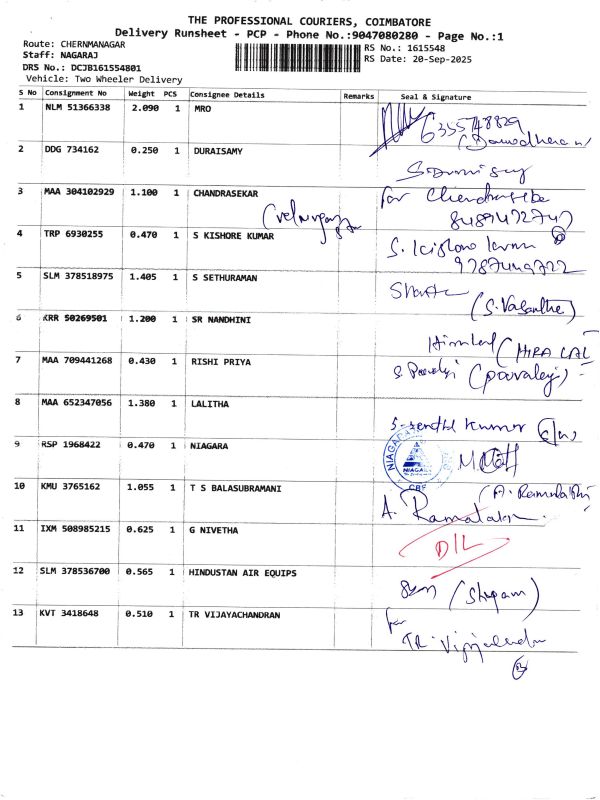 THE PROFESSIONAL COURIERS, COIMBATORE
Delivery Runsheet - PCP - Phone No.:9047080280 - Page No.:1
Route: CHERNMANAGAR
RS No.: 1615548
Staff: NAGARAJ
RS Date: 20-Sep-2025
DRS No.: DCJB161554801
Vehicle: Two Wheeler Delivery
S No Consignment No Weight PCS Consignee Details Remarks Seal & Signature
1 NLM 51366338 2.090 1 MRO
6355748829
2 DDG 734162 0.250 1 DURAISAMY
3 MAA 304102929 1.100 1 CHANDRASEKAR for
4 TRP 6930255 0.470 1 S KISHORE KUMAR
9787449722
5 SLM 378518975 1.405 1 S SETHURAMAN
(S. Vasantha)
6 KRR 50269501 1.200 1 SR NANDHINI
(HIRA LAL
7 MAA 709441268 0.430 1 RISHI PRIYA
8 MAA 652347056 1.380 1 LALITHA
S. Senthil Kumar
9 RSP 1968422 0.470 1 NIAGARA NIAGARA
10 KMU 3765162 1.055 1 T S BALASUBRAMANI
CBE
11 IXM 508985215 0.625 1 G NIVETHA D/L
12 SLM 378536700 0.565 1 HINDUSTAN AIR EQUIPS
13 KVT 3418648 0.510 1 TR VIJAYACHANDRAN for